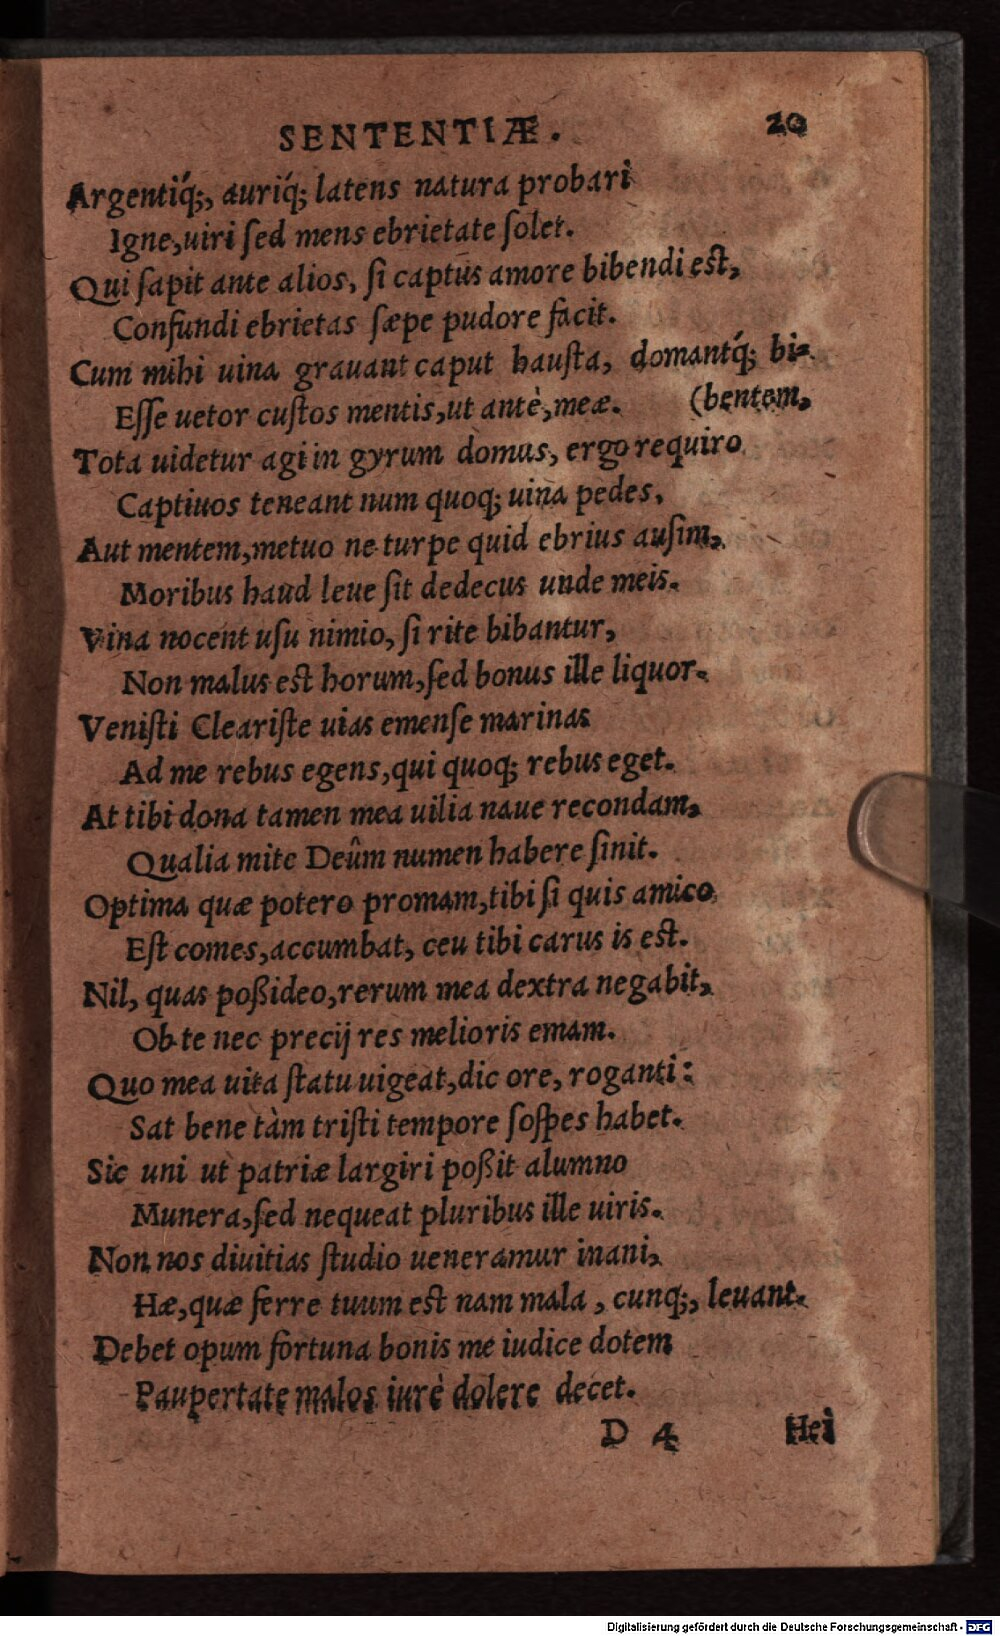 SENTENTIÆ. 20
Argentiq́;, auriq́; latens natura probari
Igne,uiri ſed mens ebrietate ſolet.
Qui ſapit ante alios, ſi captus amore bibendi eſt,
Confundi ebrietas ſæpe pudore facit.
Cum mihi uina grauant caput hauſta, domantq́; bi-
Eſſe uetor cuſtos mentis,ut antè,meæ. (bentem,
Tota uidetur agi in gyrum domus, ergo requiro
Captiuos teneant num quoq; uina pedes,
Aut mentem,metuo ne turpe quid ebrius auſim,
Moribus haud leue ſit dedecus unde meis.
Vina nocent uſu nimio, ſi rite bibantur,
Non malus eſt horum,ſed bonus ille liquor.
Veniſti Cleariſte uias emenſe marinas
Ad me rebus egens,qui quoq; rebus eget.
At tibi dona tamen mea uilia naue recondam,
Qualia mite Deûm numen habere ſinit.
Optima quæ potero promam,tibi ſi quis amico
Eſt comes,accumbat, ceu tibi carus is eſt.
Nil, quas poßideo,rerum mea dextra negabit,
Ob te nec precij res melioris emam.
Quo mea uita ſtatu uigeat,dic ore, roganti:
Sat bene tàm triſti tempore ſoſpes habet.
Sic uni ut patriæ largiri poßit alumno
Munera,ſed nequeat pluribus ille uiris.
Non nos diuitias ſtudio ueneramur inani,
Hæ,quæ ferre tuum eſt nam mala , cunq;, leuant.
Debet opum fortuna bonis me iudice dotem
Paupertate malos iurè dolere decet.
D 4 Hei
Digitalisierung gefördert durch die Deutsche Forschungsgemeinschaft - DFG